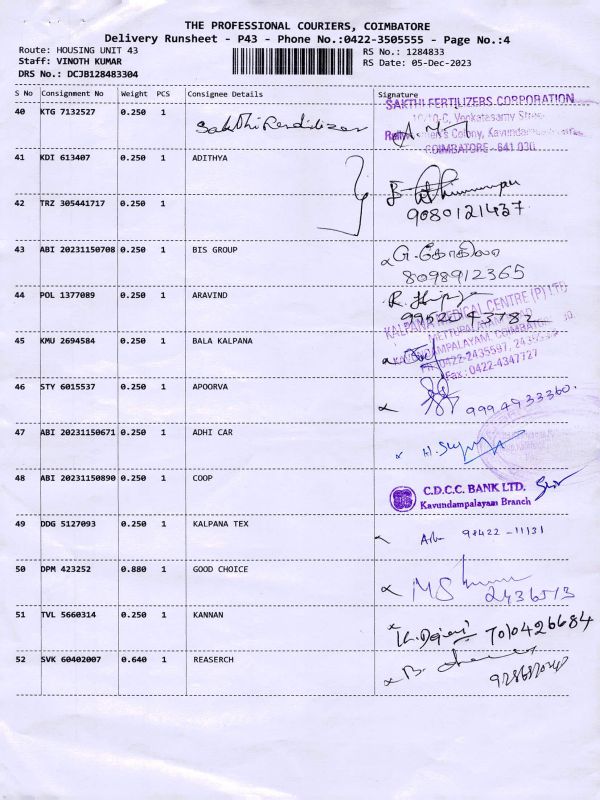 THE PROFESSIONAL COURIERS, COIMBATORE
Delivery Runsheet - P43 - Phone No.:0422-3505555 - Page No.:4
Route: HOUSING UNIT 43
RS No.: 1284833
Staff: VINOTH KUMAR
RS Date: 05-Dec-2023
DRS No.: DCJB128483304
S No Consignment No Weight PCS Consignee Details Signature
SAKTHI FERTILIZERS CORPORATION
40 KTG 7132527 0.250 1
10/10-C, Venkatesamy Street
Colony, Kavundam
COIMBATORE - 641 030
41 KDI 613407 0.250 1 ADITHYA
42 TRZ 305441717 0.250 1
9080121437
43 ABI 20231150708 0.250 1 BIS GROUP G. கோகிலா
8098912365
44 POL 1377089 0.250 1 ARAVIND
9952043782
KALPANA MEDICAL CENTRE (P) LTD
METTUPALAYAM ROAD
KAVUNDAMPALAYAM, COIMBATORE
45 KMU 2694584 0.250 1 BALA KALPANA
Ph: 0422-2435597,
Fax: 0422-4347727
46 STY 6015537 0.250 1 APOORVA
9994933360.
47 ABI 20231150671 0.250 1 ADHI CAR
48 ABI 20231150890 0.250 1 COOP C.D.C.C. BANK LTD.
Kavundampalayam Branch
49 DDG 5127093 0.250 1 KALPANA TEX 98422 - 11131
50 DPM 423252 0.880 1 GOOD CHOICE
2436513
51 TVL 5660314 0.250 1 KANNAN 7010426684
52 SVK 60402007 0.640 1 REASERCH